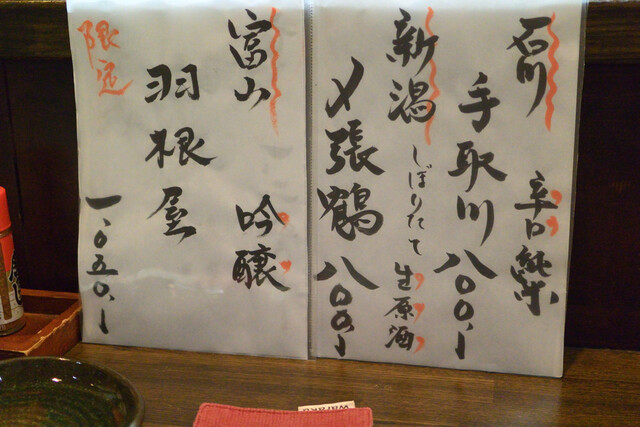 石川 辛口純米
手取川 八〇〇、
新潟 しぼりたて 生原酒
〆張鶴 八〇〇、
富山 吟醸
羽根屋
限定 一、〇五〇、